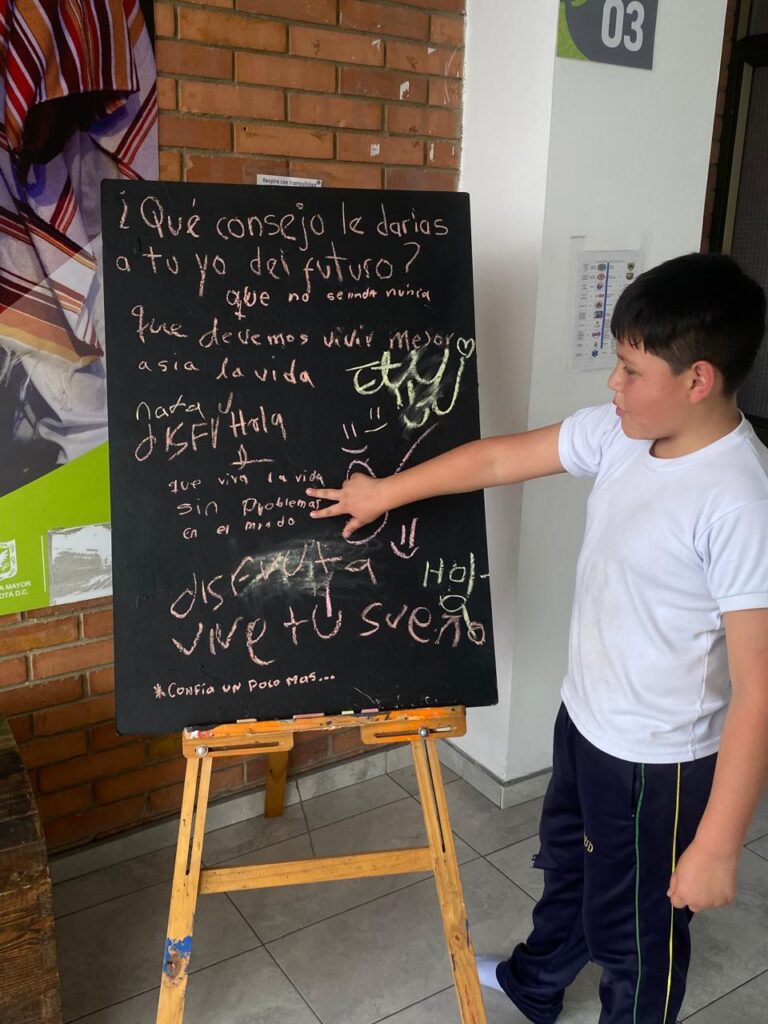 03
Respira con tranquilidad
¿Qué consejo le darias
a tu yo del futuro?
que no se rinda nunca
que devemos vivir mejor
asia la vida
nata
DISFV Hola
que viva la vida
sin Problemas
en el mundo
DISFRUTA
Hol
vive tu sueño
*Confía un poco mas...
A MAYOR
OTÁ D.C.